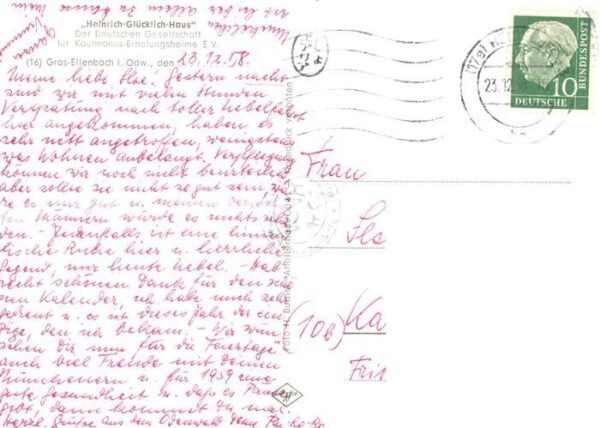 „Heinrich-Glücklich-Haus"
der Deutschen Gesellschaft
für Kaufmanns-Erholungsheime E.V.
(16) Gras-Ellenbach i. Odw., den 23.12.58.
Meine liebe Ilse! Gestern nacht
sind wir mit vielen Stunden
Verspätung nach toller Nebelfahrt
hier angekommen, haben es
sehr nett angetroffen, wenigstens
was Wohnen anbelangt. Verpflegung
können wir noch nicht beurteilen
aber sollte sie nicht so gut sein, wä-
re es nur gut u. meinen
Männern würde es nicht scha-
den. - Jedenfalls ist eine himm-
lische Ruhe hier u. herrliche
Gegend, nur heute Nebel. - Hab
recht schönen Dank für den schö-
nen Kalender, ich habe mich sehr
gefreut u. es ist dieses Jahr der ein-
zige, den ich bekam. - Wir wün-
schen Dir nun für die Feiertage
auch viel Freude mit Deinen
Münchenern u. für 1959 eine
gute Gesundheit u. daß es
gibt, dann kommst Du mal.
Herzl. Grüße aus dem Odenwald Deine
Frau
Ils
(10b) Ka
Fri
23.12.
DEUTSCHE
BUNDESPOST
10